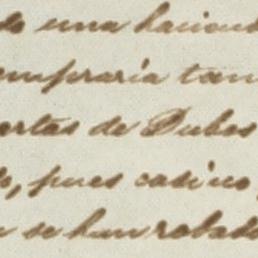 do una haciend
empraria tam
ertas de Dubos
do, pues casino
n se han robado